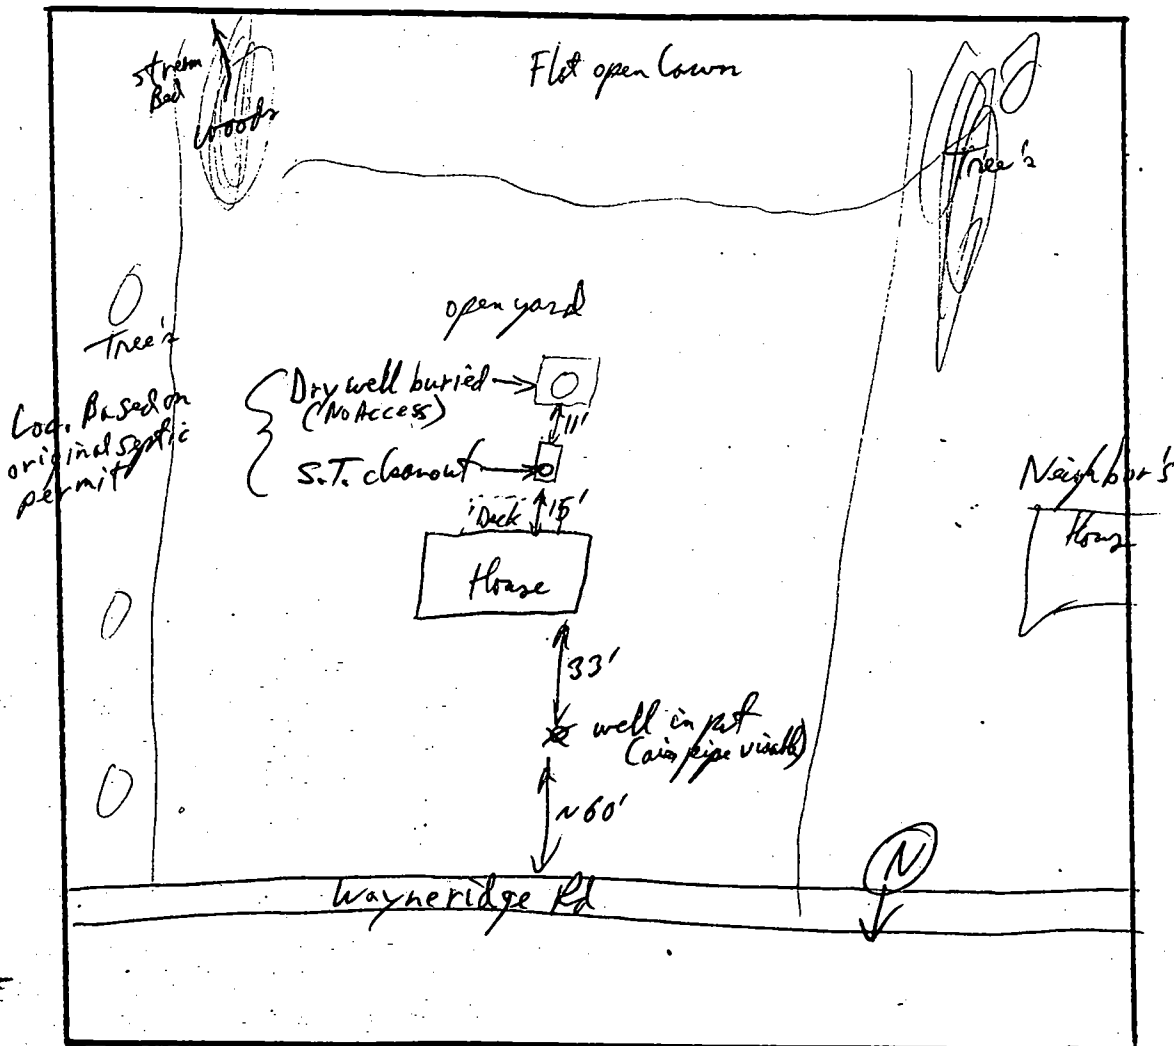 Stream
Bed
woods
Flat open Lawn
Tree's
open yard
Tree's
Loc. Based on
original septic
permit
Dry well buried
(No Access)
11'
S.T. cleanout
Deck
15'
House
Neighbor's
House
33'
well in pit
(air pipe visable)
~60'
N
Wayneridge Rd